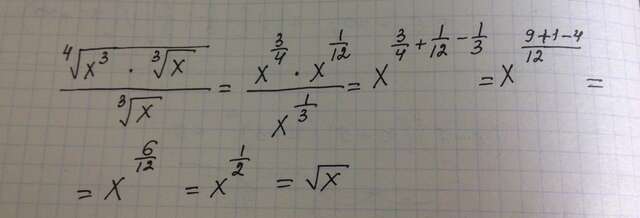 ⁴√(x³ · ³√x) / ³√x = x^(3/4) · x^(1/12) / x^(1/3) = x^(3/4 + 1/12 − 1/3) = x^((9+1−4)/12) =
= x^(6/12) = x^(1/2) = √x